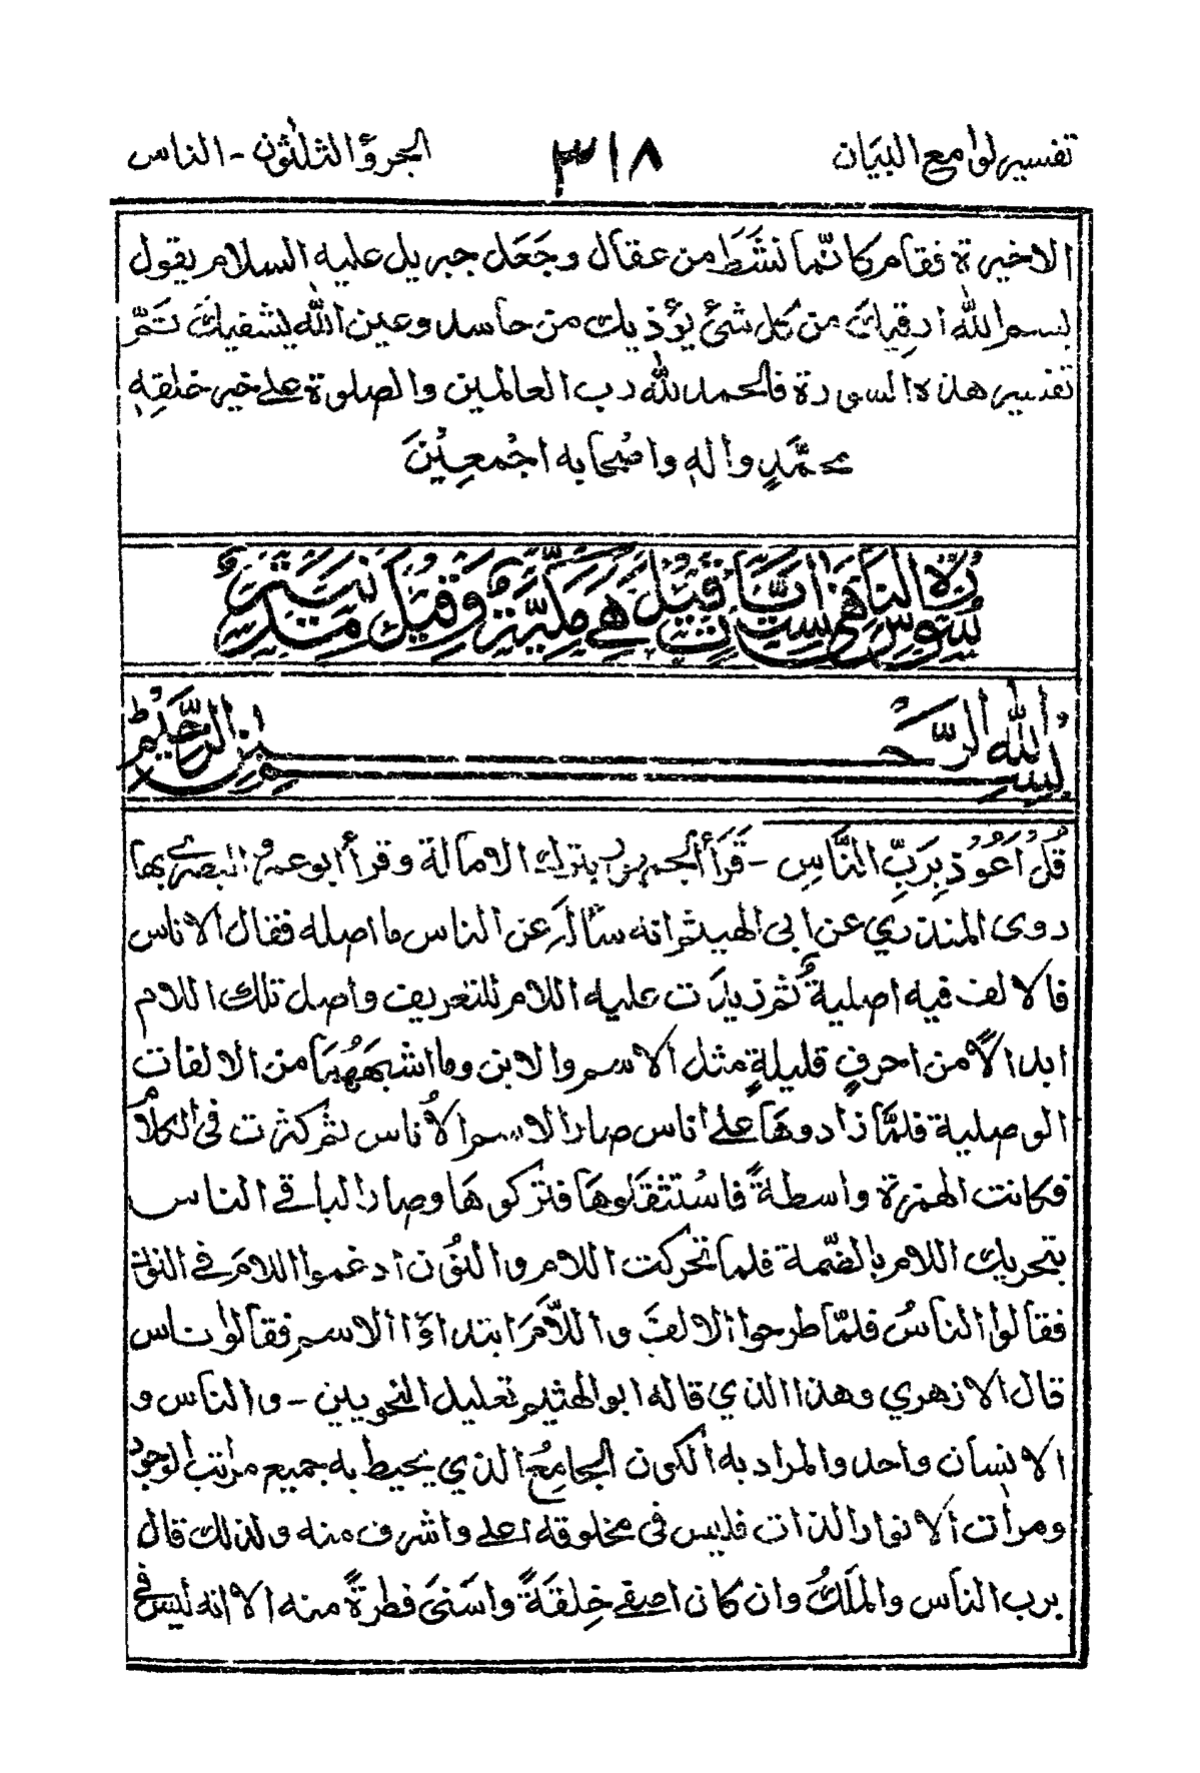 تفسير لوامع البيان ٣١٨ الجزؤ الثلثون - الناس
الاخيرة فقام كانّما نشَط من عقال وجَعَل جبريل عليه السلام يقول
بسم الله ارقِيكَ من كل شئ يؤذيك من حاسد وعين الله يشفيكَ تَمَّ
تفسير هذه السورة فالحمد لله رب العالمين والصلوة على خير خلقهٖ
محمَّدٍ واٰلهٖ واصْحابه اجْمعِيْنَ
سُوْرَةُ النَّاسِ هِيَ سِتُّ اٰيَاتٍ قِيْلَ هِيَ مَكِّيَّةٌ وَقِيْلَ مَدَنِيَّةٌ
بِسْمِ اللهِ الرَّحْمٰنِ الرَّحِيْمِ
قُلْ اَعُوْذُ بِرَبِّ النَّاسِ - قَرَأ الجمهور بترك الامالة وقرأ ابو عمرو البصرى بها
روى المنذري عن ابى الهيثم انه سأله عن الناس ما اصله فقال الاناس
فالالف فيه اصلية ثُم زيدَت عليه اللام للتعريف واصل تلك اللام
ابدالًا من احرفٍ قليلةٍ مثل الاسم والابن وما اشبهَهُمَا من الالفات
الوصلية فلمَّا زادوهَا على اناس صار الاسم الاُناس ثم كثرت فى الكلام
فكانت الهمزة واسطةً فاسْتثقلوهَا فتركوهَا وصار الباقى الناس
بتحريك اللام بالضمّة فلما تحركت اللام والنُون ادغموا اللامَ فى النون
فقالوا النَّاسُ فلمَّا طرحوا الالفَ واللَّامَ ابتداؤا الاسم فقالوا ناس
قال الازهري وهذا الذي قاله ابو الهثيم تعليل النحويين - والناس و
الانسان واحد والمراد به الكون الجامعُ الذي يحيط به جميع مراتب الوجود
ومرات الانوار الذات فليس فى مخلوقه اعلى واشرف منه ولذلك قال
برب الناس والمَلَكُ وان كان اصفى خِلقَةً واسَنىَ فطرةً منه الا انه ليس فى